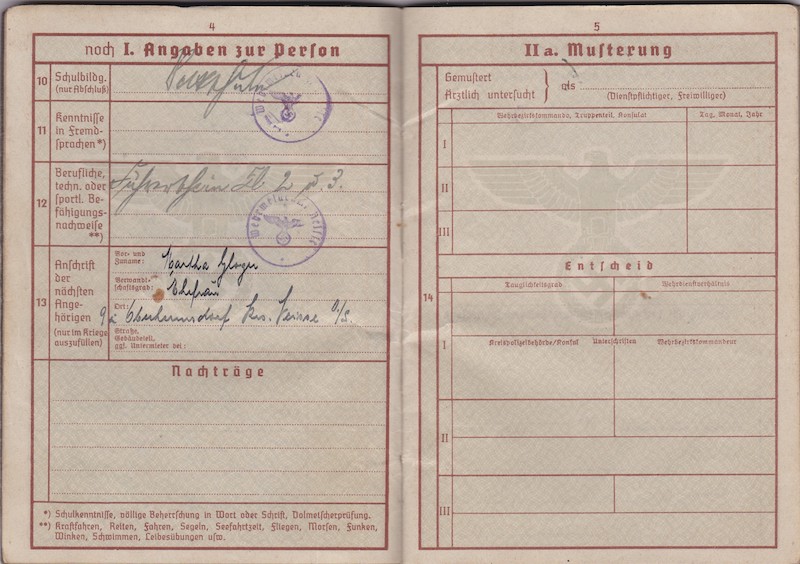 4
noch I. Angaben zur Person
10 Schulbildg.
(nur Abschluß)
Volksschule
11 Kenntnisse
in Fremd-
sprachen *)
12 Berufliche,
techn. oder
sportl. Be-
fähigungs-
nachweise
**)
Führerschein Kl. 2 u. 3.
Wehrmeldeamt Neisse
13 Anschrift
der
nächsten
Ange-
hörigen
(nur im Kriege
auszufüllen)
Vor- und
Zuname:
Martha Gloger
Verwandt-
schaftsgrad:
Ehefrau
Ort:
Oberhermsdorf Krs. Neisse O/S.
Straße,
Gebäudeteil,
ggf. Untermieter bei:
Nachträge
*) Schulkenntnisse, völlige Beherrschung in Wort oder Schrift, Dolmetscherprüfung.
**) Kraftfahren, Reiten, Fahren, Segeln, Seefahrtzeit, Fliegen, Morsen, Funken,
Winken, Schwimmen, Leibesübungen usw.
5
II a. Musterung
Gemustert
Ärztlich untersucht } als
(Dienstpflichtiger, Freiwilliger)
Wehrbezirkkommando, Truppenteil, Konsulat Tag, Monat, Jahr
I
II
III
Entscheid
14
Tauglichkeitsgrad Wehrdienstverhältnis
I Kreispolizeibehörde/Konsul Unterschriften Wehrbezirkkommandeur
II
III